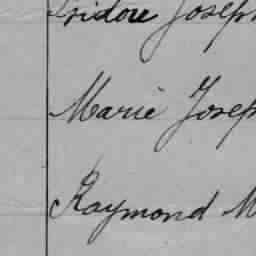 Isidore Joseph
Marie Josep
Raymond M